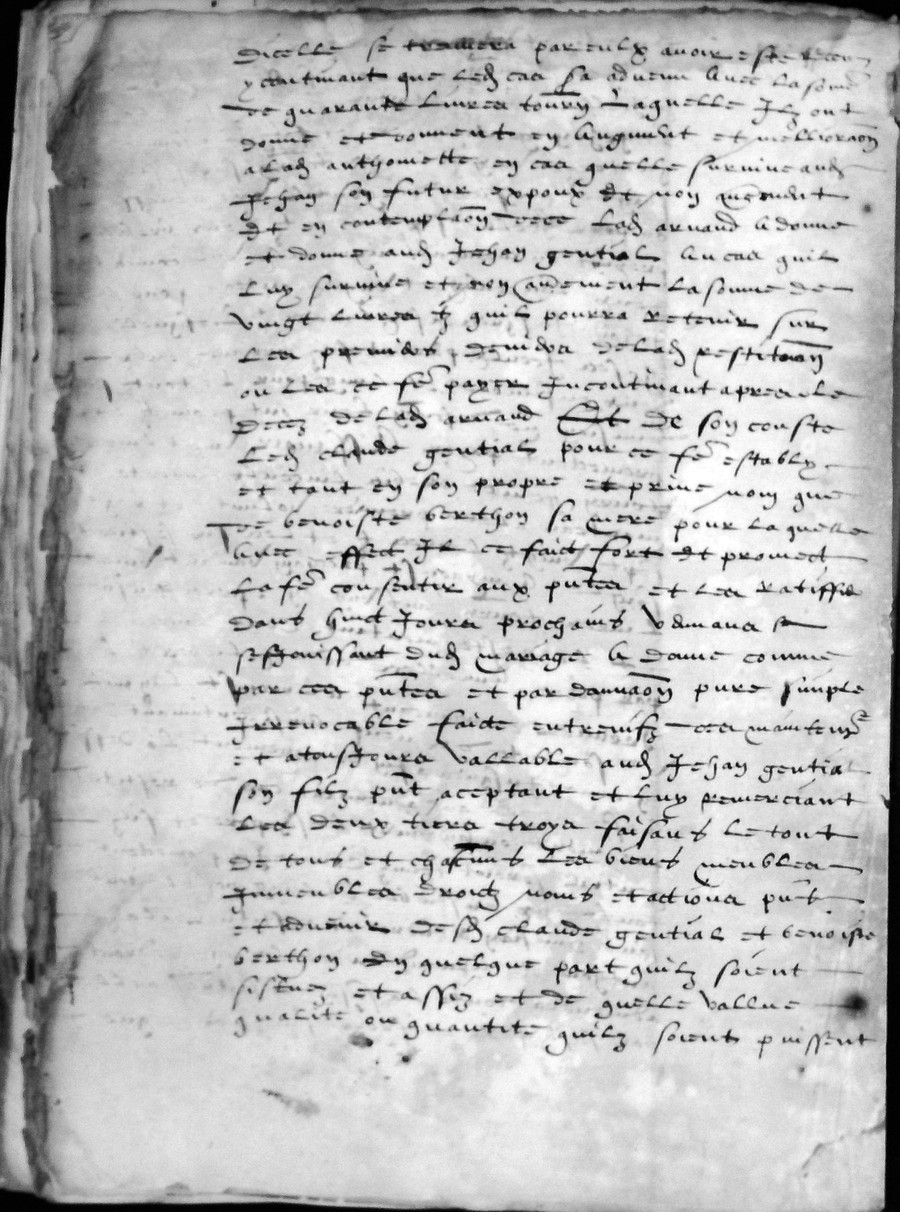 dicelle se treuvera par eulx avoir este receu
continant que led cas sa advenu avec la some
de quarante livres tourn laquelle Ilz ont
donne et donnent en augment et mellioraon
a lad anthoinette en cas quelle survive aud
Jehan son futur expoux et non autrement
et en contemplaon de ce lad arnaud a donne
et donne aud Jehan gential au cas quil
luy survive et non autrement la somme de
vingt livres tz quil pourra retenir sur
les premiers deniers de lad restitution
ou les ce fe payer Incontinant apres le
decez de lad arnaud Et de son couste
led claude gential pour ce fe estably
et tant en son propre et prive nom que
de benoiste berthon sa mere pour laquelle
avec effect Il ce faict fort et promect
la fe consentir aux pntes et les ratiffie
dans huict Jours prochains venans
sesJouissant dud mariage a donne comme
par ces pntes et par donnaon pure simple
Irrevocable faicte entre vifz des maintent
et a tousJours vallable aud Jehan gential
son filz pnt aceptant et luy remerciant
les deux tiers troys faisans le tout
de tous et chacuns les biens meubles
Immeubles droictz noms et actions pnt
et advenir desd claude gential et benoiste
berthon en quelque part quilz soient
et assiz et de quelle vallue
qualite ou quantite quilz soient puissent